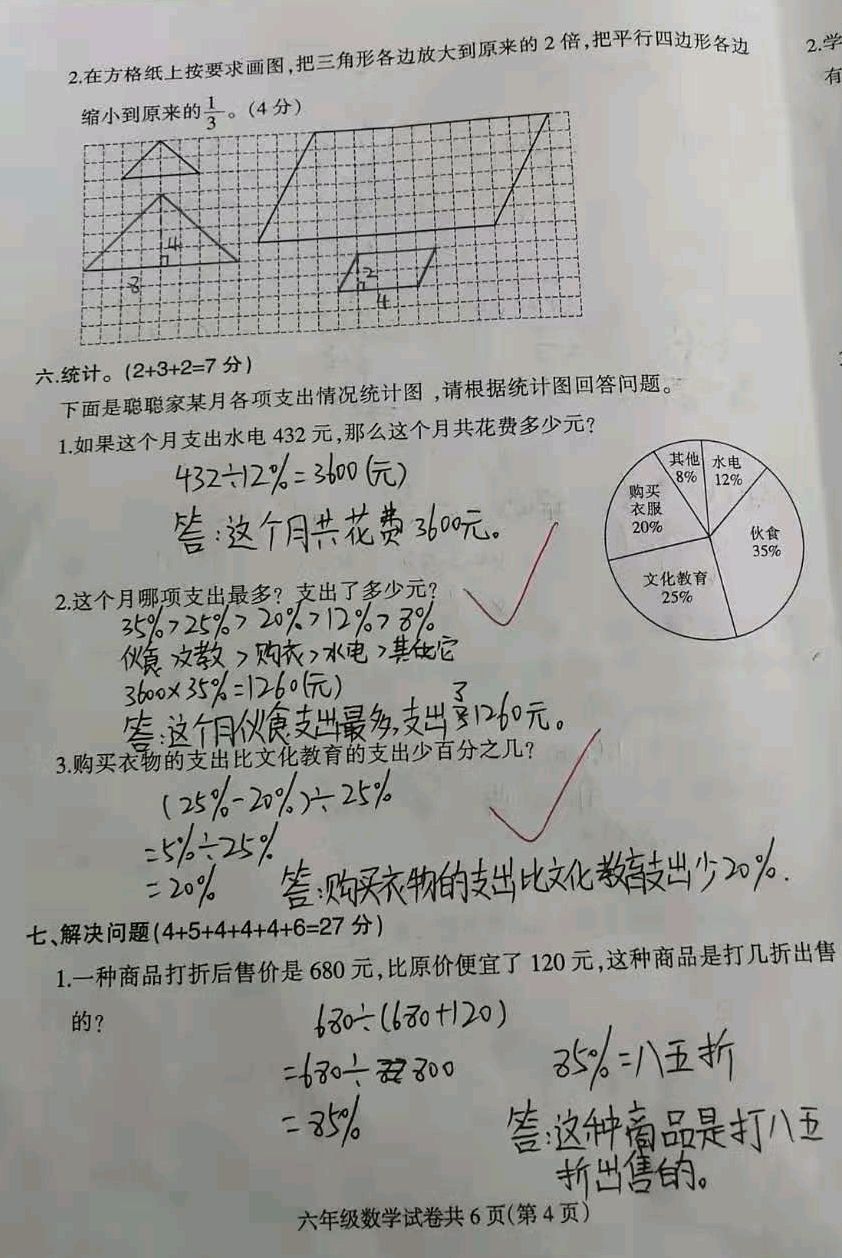 2.在方格纸上按要求画图,把三角形各边放大到原来的2倍,把平行四边形各边
缩小到原来的1/3。(4分)
4
8
2
4
六.统计。(2+3+2=7分)
下面是聪聪家某月各项支出情况统计图,请根据统计图回答问题。
1.如果这个月支出水电432元,那么这个月共花费多少元?
432÷12%=3600(元)
答:这个月共花费3600元。
其他
8%
水电
12%
购买
衣服
20%
伙食
35%
文化教育
25%
2.这个月哪项支出最多?支出了多少元?
35%>25%>20%>12%>8%
伙食>文教>购衣>水电>其他它
3600×35%=1260(元)
答:这个月伙食支出最多,支出了1260元。
3.购买衣物的支出比文化教育的支出少百分之几?
(25%-20%)÷25%
=5%÷25%
=20%
答:购买衣物的支出比文化教育支出少20%.
七、解决问题(4+5+4+4+4+6=27分)
1.一种商品打折后售价是680元,比原价便宜了120元,这种商品是打几折出售
的?
680÷(680+120)
=680÷800
=85%
85%=八五折
答:这种商品是打八五
折出售的。
六年级数学试卷共6页(第4页)
2.学
有